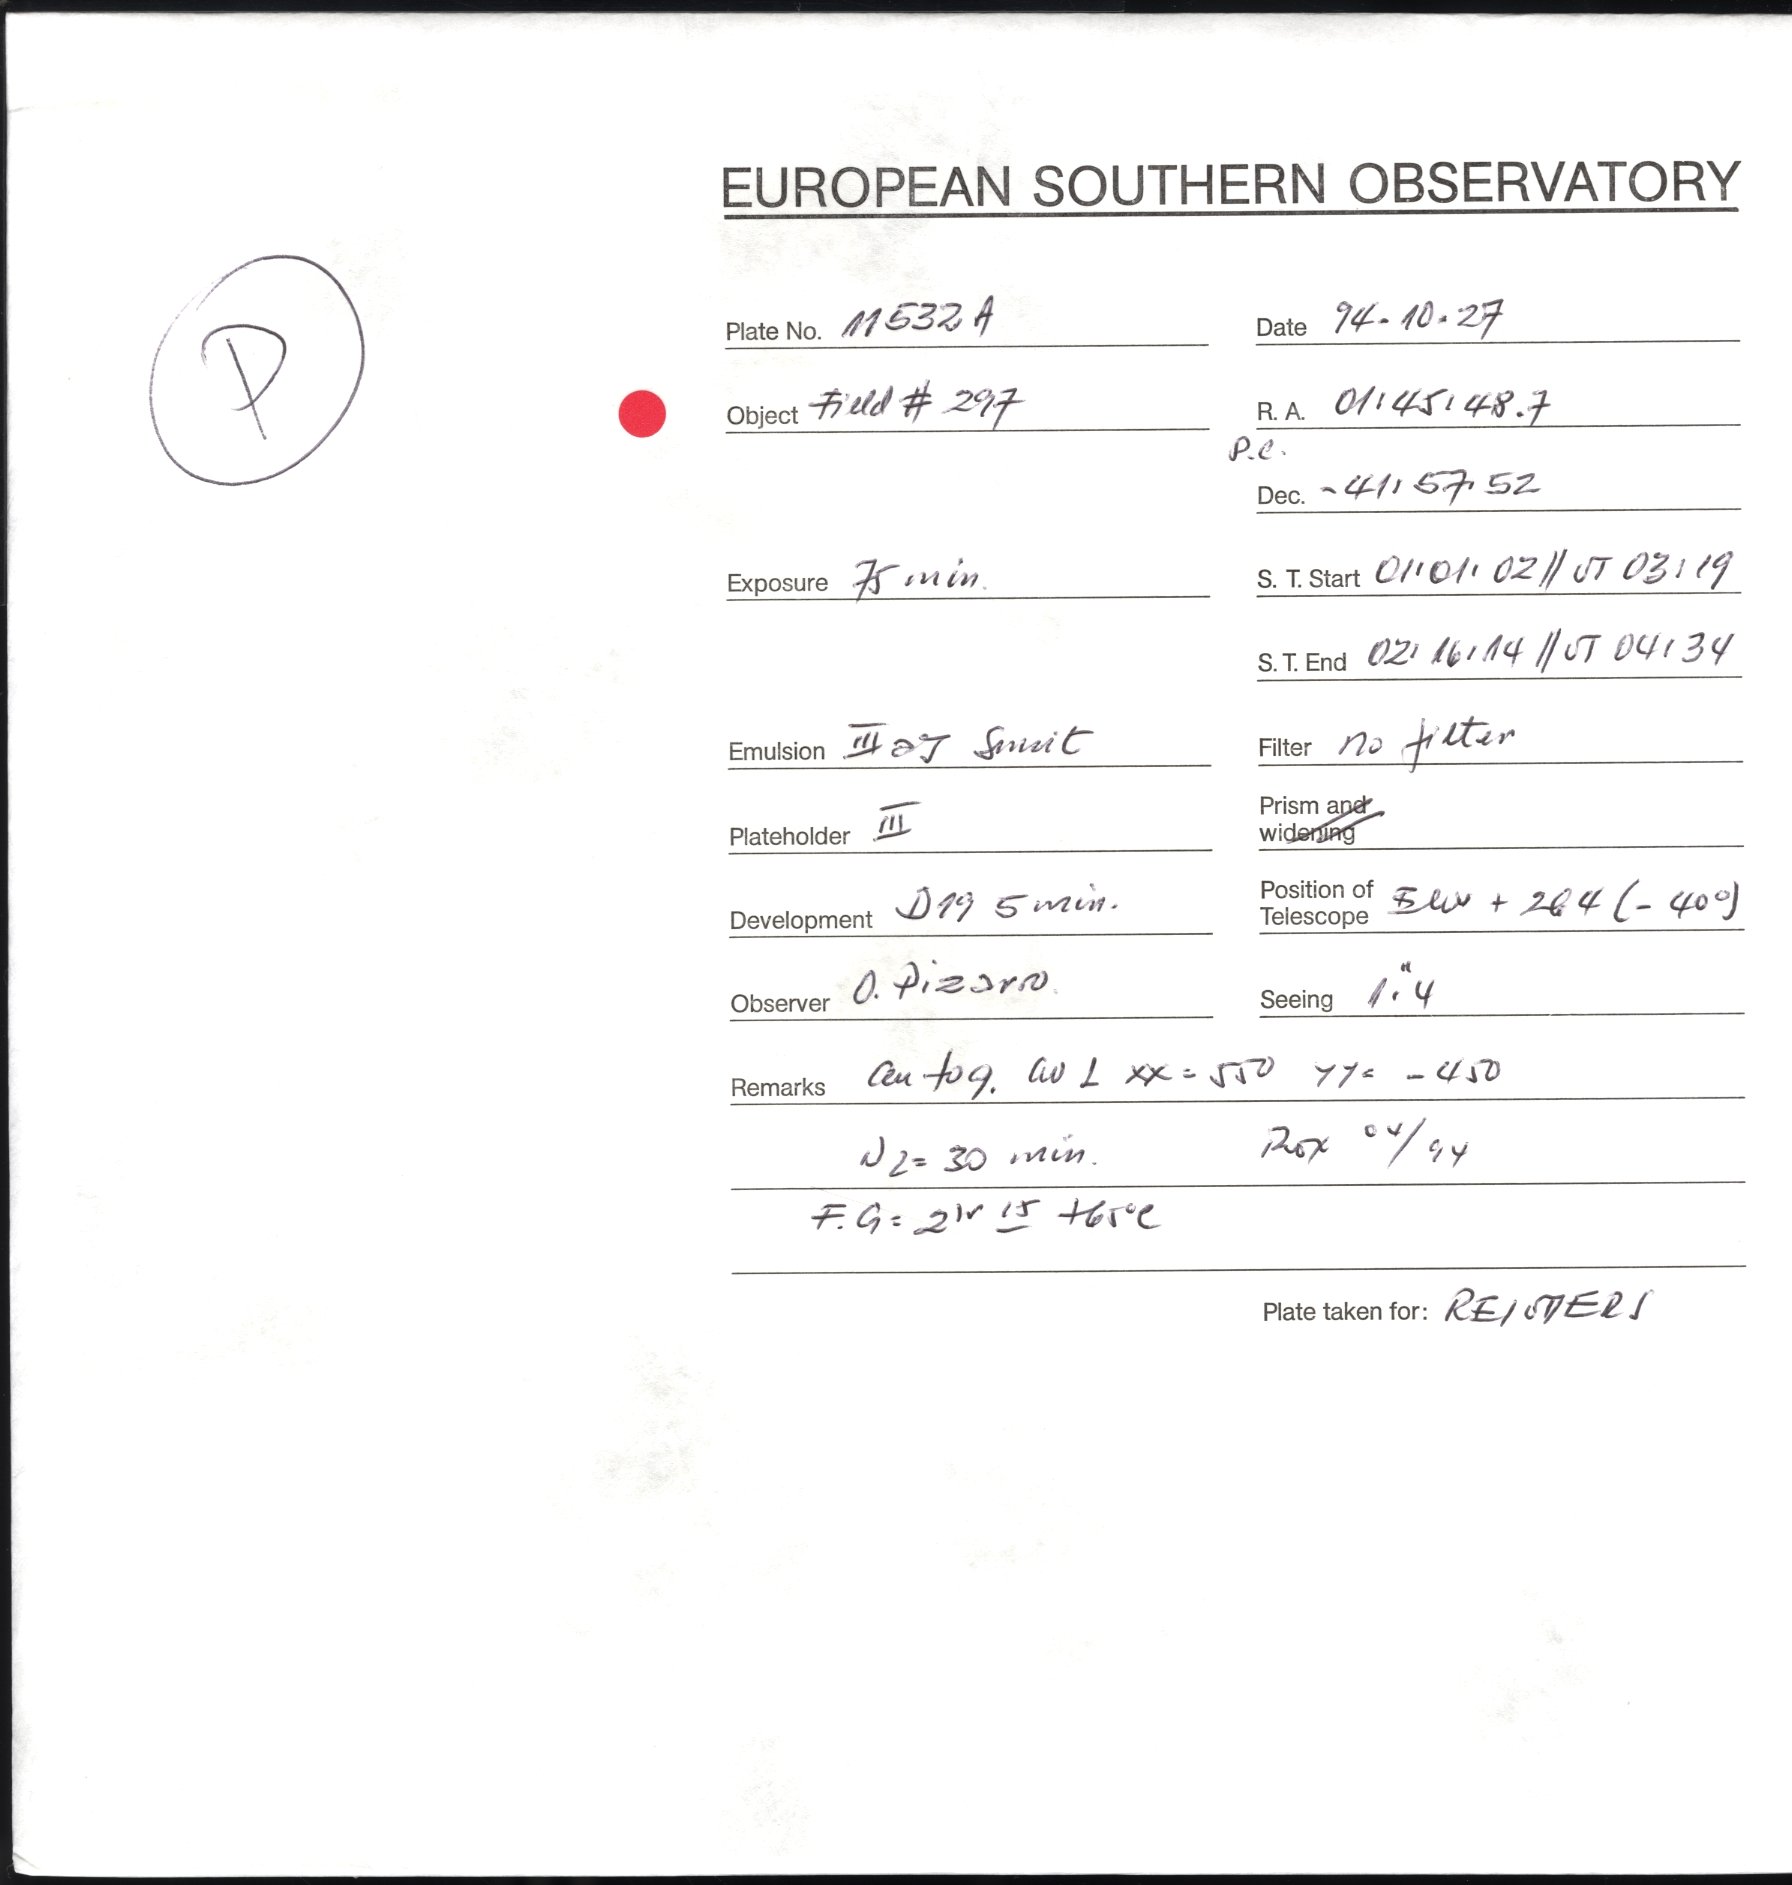 EUROPEAN SOUTHERN OBSERVATORY
P
Plate No. 11532 A
Date 94-10-27
Object Field # 297
R. A. 01:45:48.7
P.C.
Dec. -41:57:52
Exposure 75 min.
S. T. Start 01:01:02 // UT 03:19
S. T. End 02:16:14 // UT 04:34
Emulsion III aJ
Filter no filter
Plateholder III
Prism and widening
Development D19 5 min.
Position of Telescope + 264 (-40°)
Observer O. Pizarro
Seeing 1."4
Remarks XX = 550 YY = -450
N2 = 30 min. 04/94
F.G = 2hr 15 +65°C
Plate taken for: